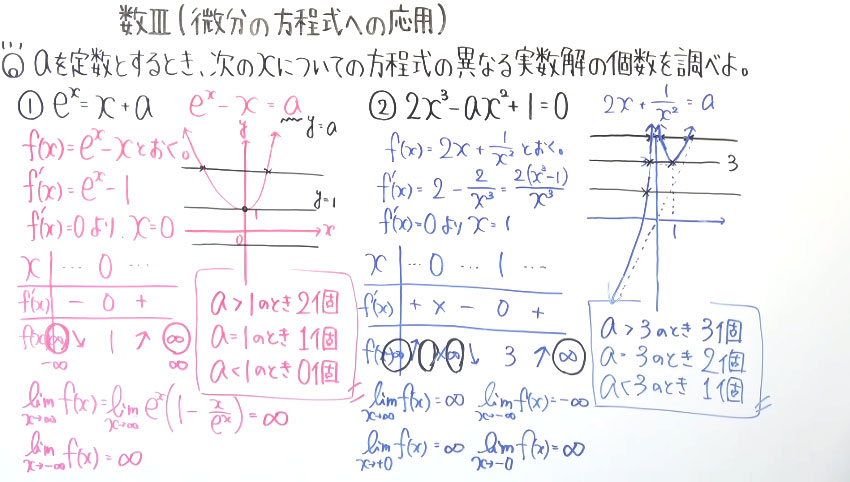 数Ⅲ(微分の方程式への応用)
問 aを定数とするとき、次のxについての方程式の異なる実数解の個数を調べよ。
① eˣ = x + a
eˣ - x = a
y=a
f(x) = eˣ - x とおく。
f'(x) = eˣ - 1
f'(x)=0より、x=0
y
y=1
1
0
x
x ... 0 ...
f'(x) - 0 +
f(x) ∞ ↘ 1 ↗ ∞
-∞ ∞
a > 1のとき 2個
a = 1のとき 1個
a < 1のとき 0個
lim x→∞ f(x) = lim x→∞ eˣ(1 - x/eˣ) = ∞
lim x→-∞ f(x) = ∞
② 2x³ - ax² + 1 = 0
2x + 1/x² = a
f(x) = 2x + 1/x² とおく。
f'(x) = 2 - 2/x³ = 2(x³-1)/x³
f'(x)=0より x=1
3
1
x ... 0 ... 1 ...
f'(x) + × - 0 +
f(x) -∞ ↗ ∞ × ∞ ↘ 3 ↗ ∞
a > 3のとき 3個
a = 3のとき 2個
a < 3のとき 1個
lim x→∞ f(x) = ∞ lim x→-∞ f(x) = -∞
lim x→+0 f(x) = ∞ lim x→-0 f(x) = ∞